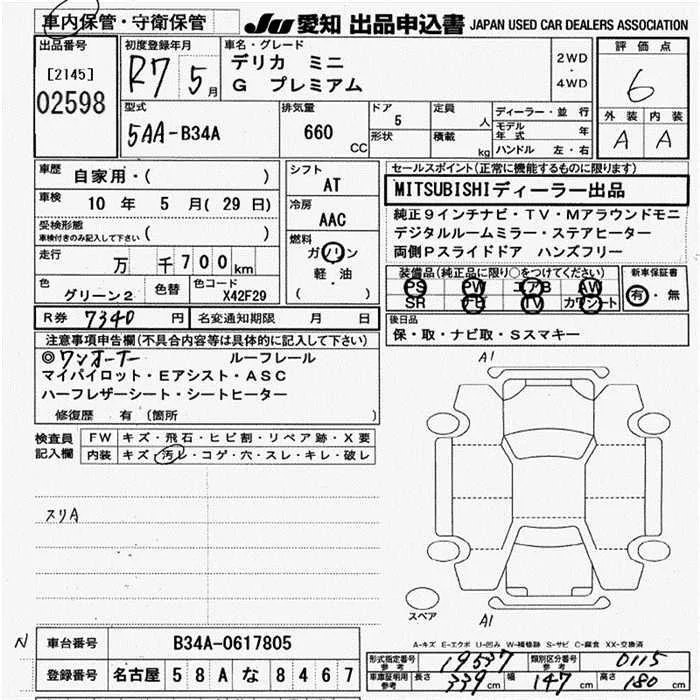 車内保管・守衛保管 JU 愛知 出品申込書 JAPAN USED CAR DEALERS ASSOCIATION
出品番号
[2145]
02598
初度登録年月
R7 5月
車名・グレード
デリカ ミニ
G プレミアム
2WD
・
4WD
評価点
6
外装 内装
A A
型式
5AA-B34A
排気量
660
CC
ドア
5
形状
定員
人
積載
kg
ディーラー・並行
モデル年式 年
ハンドル 左・右
車歴
自家用・( )
車検
10 年 5 月(29 日)
受検形態
車検付きのみ記入して下さい ( )
走行
万 千700km
色
グリーン2
色替
色コード
X42F29
シフト
AT
冷房
AAC
燃料
ガソリン
軽・油
( )
セールスポイント(正常に機能するものに限ります)
MITSUBISHIディーラー出品
純正9インチナビ・TV・Mアラウンドモニ
デジタルルームミラー・ステアヒーター
両側Pスライドドア ハンズフリー
装備品(純正品に限り○をつけてください)
PS PW エアB AW
SR ナビ TV カワシート
新車保証書
有・無
R券 7340 円 名変通知期限 月 日
後日品
保・取・ナビ取・Sスマキー
注意事項申告欄(不具合内容等は具体的に記入して下さい)
◎ワンオーナー ルーフレール
マイパイロット・Eアシスト・ASC
ハーフレザーシート・シートヒーター
修復歴 有 (箇所 )
検査員記入欄
FW キズ・飛石・ヒビ割・リペア跡・X要
内装 キズ・汚レ・コゲ・穴・スレ・キレ・破レ
スリA
A1
A1
スペア
A-キズ E-エクボ U-凹み W-補修跡 S-サビ C-腐食 XX-交換済
N 車台番号 B34A-0617805
登録番号 名古屋 58Aな8467
形式指定番号参考 19537 類別区分番号参考 0115
車庫証明用参考 長さ 339 cm 幅 147 cm 高さ 180 cm